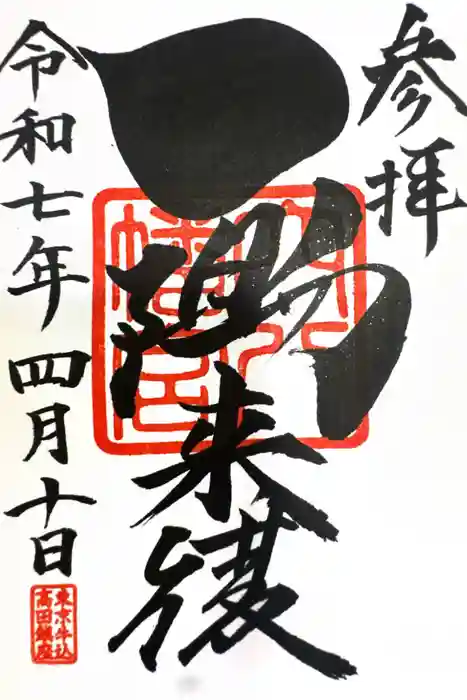 参拝
一陽来復
穴八
幡宮
令和七年四月十日
東京牛込
高田鎮座